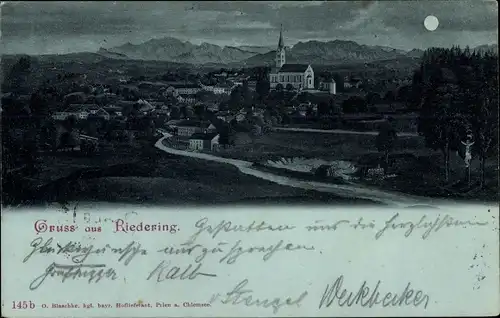 Gruss aus Riedering. Gestatten uns die herzlichsten
Glückwünsche auszusprechen
Kalb
Stenzel Werkherker
145b O. Blaschke, kgl. bayr. Hoflieferant, Prien a. Chiemsee.